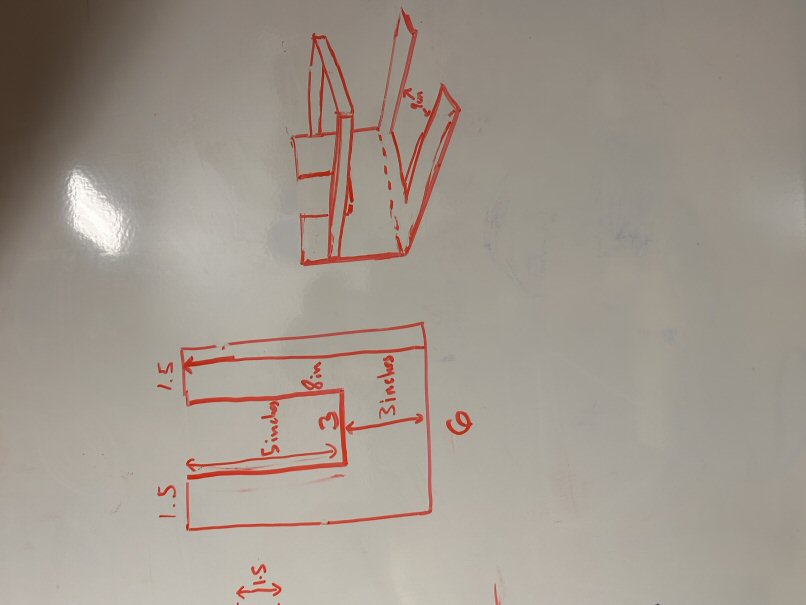 1.5
1.5
1.5
5 inches
8in
3
3 inches
6